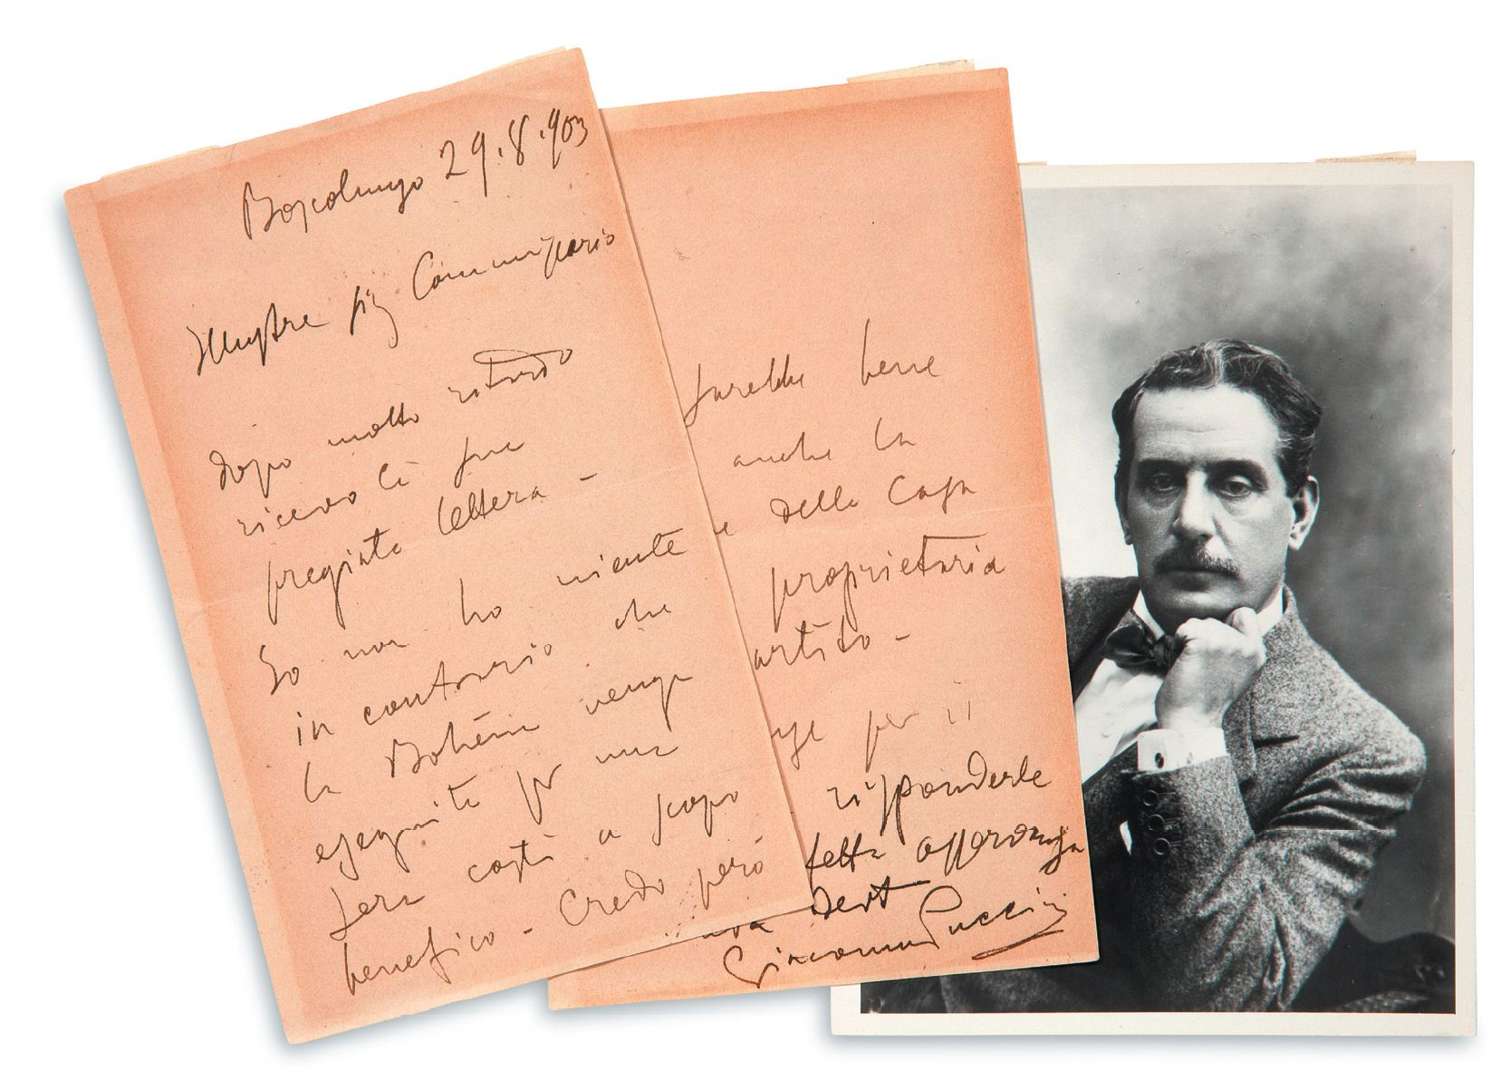 Boscolungo 29.8.903
Illustre Sig Commissario
dopo molto ritardo
ricevo la sua
pregiata lettera -
Io non ho niente
in contrario che
la Bohème venga
eseguita per una
sera costì a scopo
benefico - Credo però
sarebbe bene
anche la
e della Casa
proprietaria
artito -
per il
risponderle
tetta osservanza
devt
Giacomo Puccini